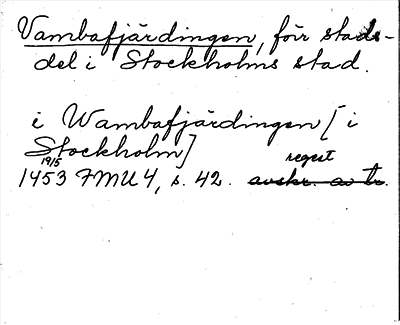 Vambafjärdingen, förr stads-
del i Stockholms stad.
i Wambafjärdingen [i
Stockholm]
19/5 regest
1453 FMU 4, s. 42. avskr. av tr.